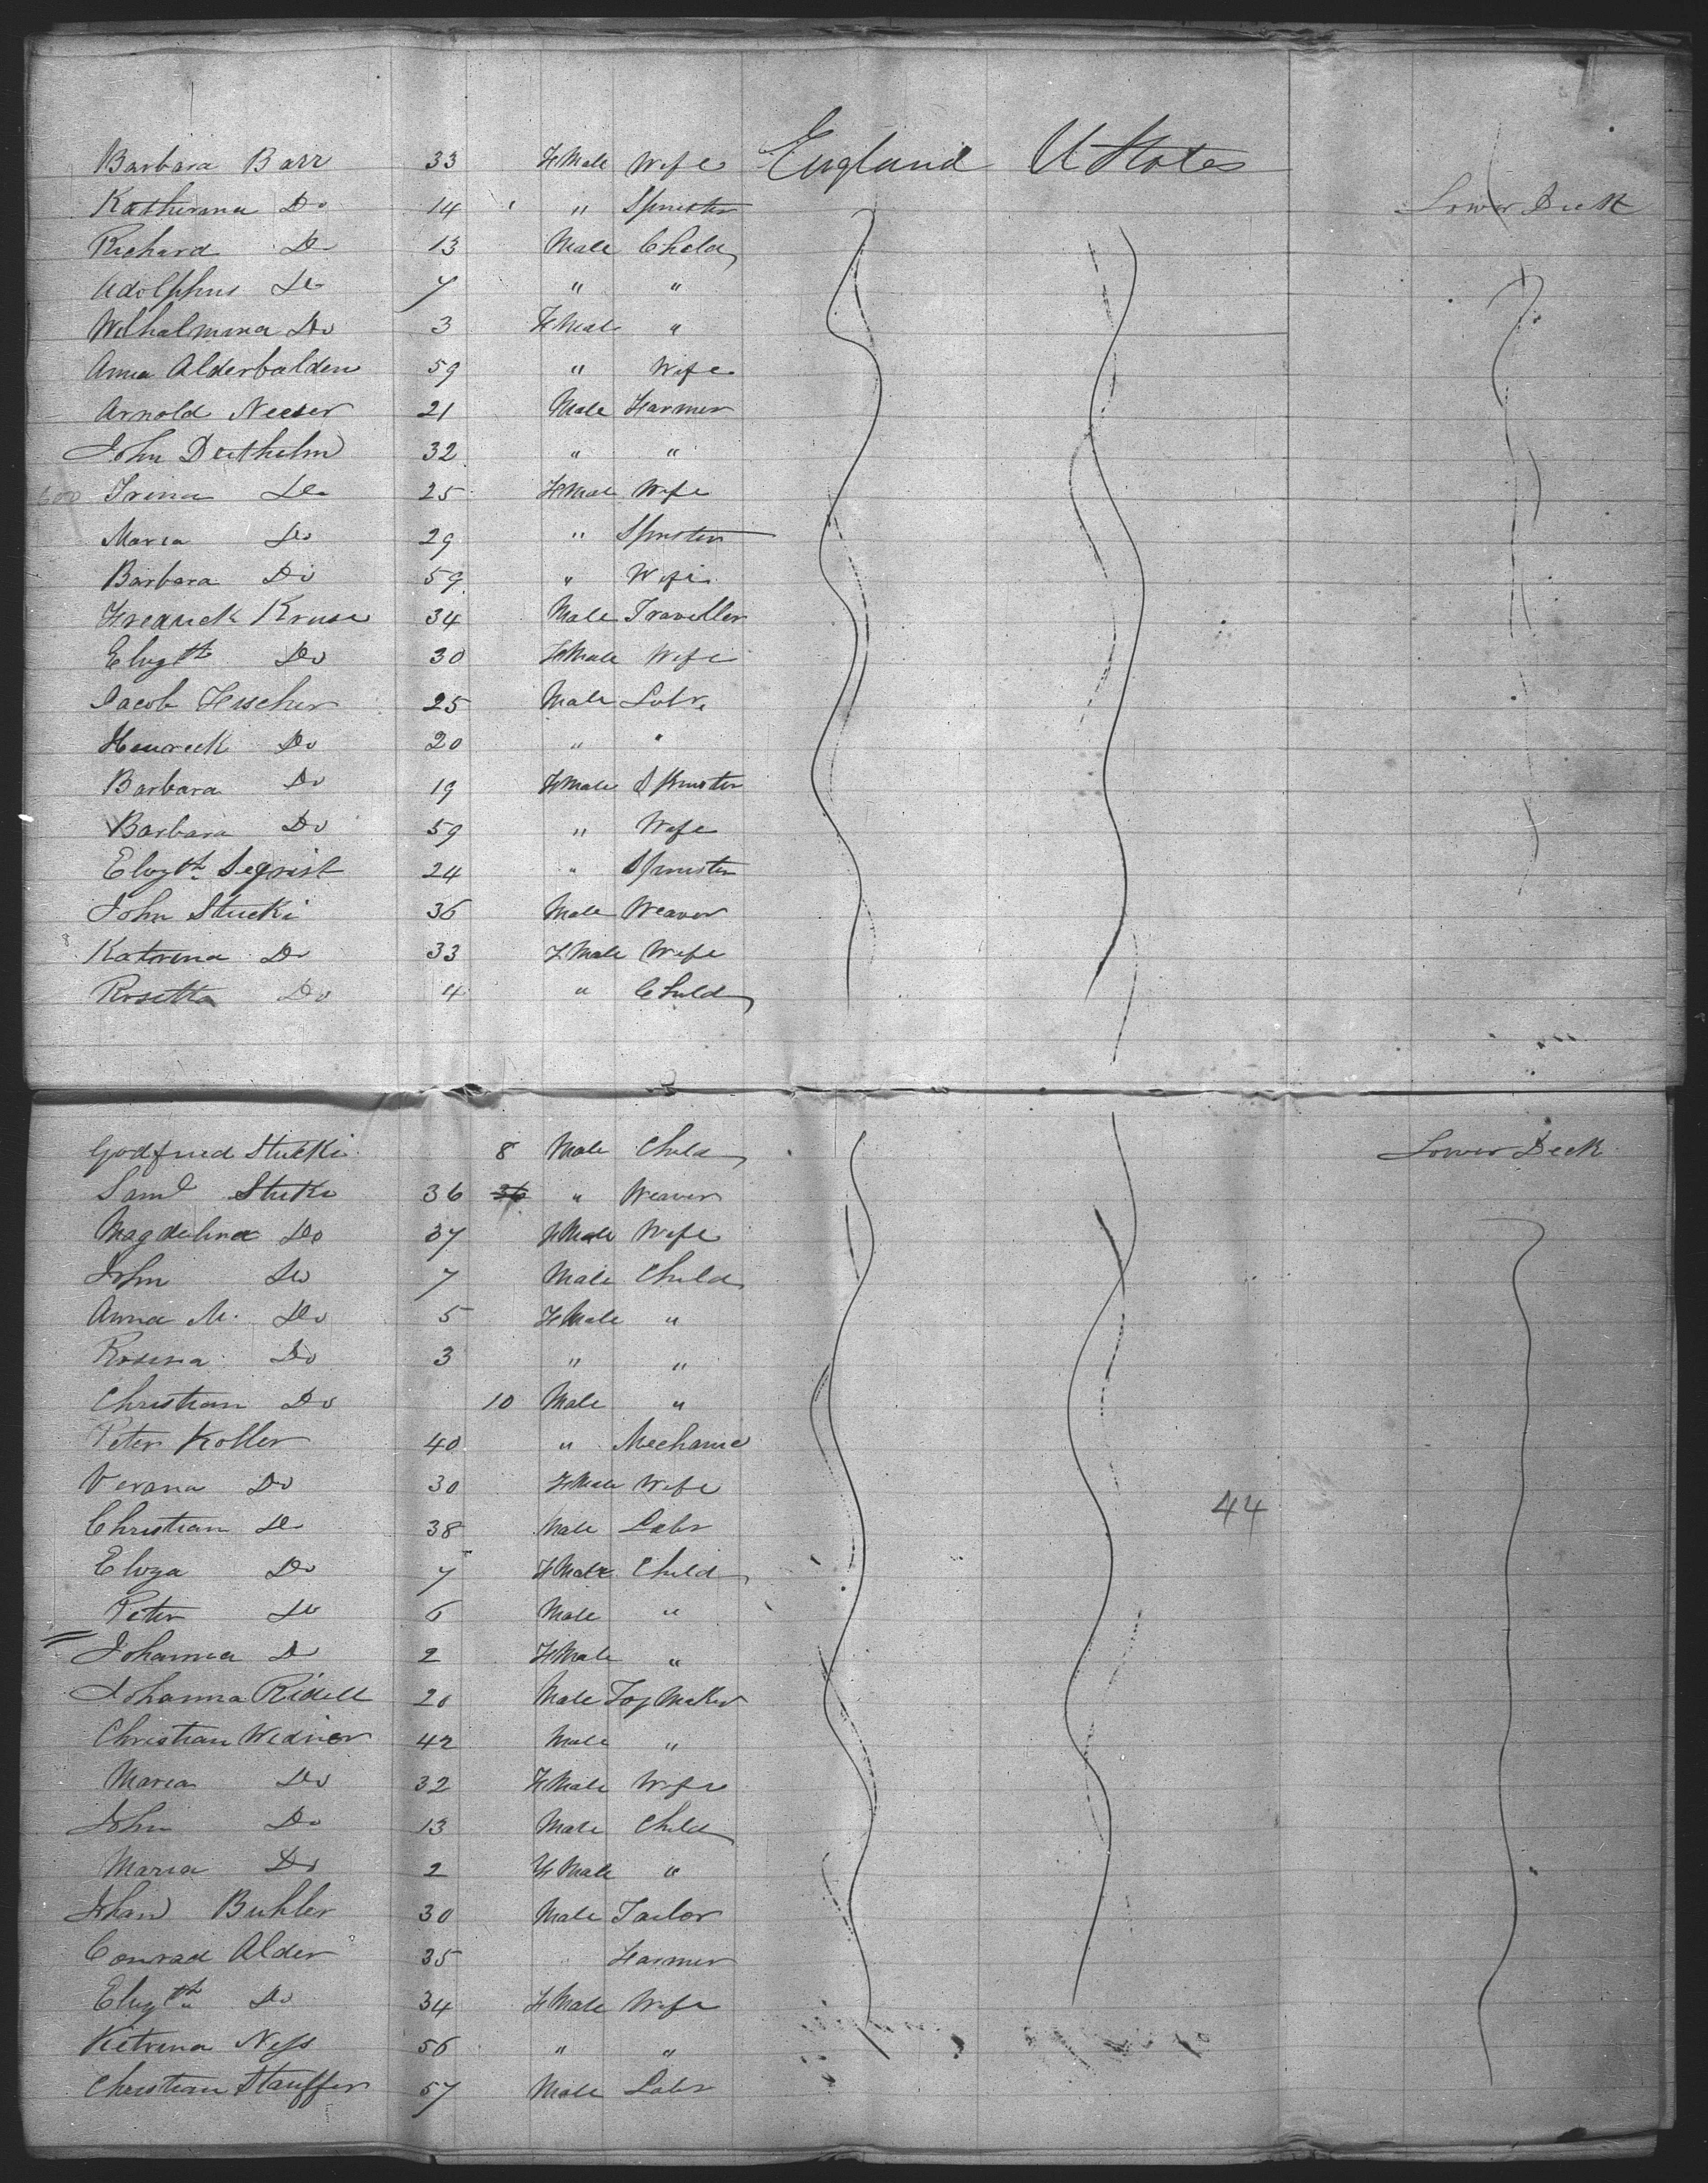 Barbara Barr 33 Female Wife England U States
Katherina Do 14 " Spinster Lower Deck
Richard Do 13 Male Child
Adolphus Do 7 " "
Wilhalmina Do 3 Female "
Anna Alderbalden 59 " Wife
Arnold Neeser 21 Male Farmer
John Deithelm 32 " "
600 Irena Do 25 Female Wife
Maria Do 29 " Spinster
Barbara Do 59 " Wife
Fredrick Kruse 34 Male Traveller
Elizth Do 30 Female Wife
Jacob Fischer 25 Male Labr
Henreck Do 20 " "
Barbara Do 19 Female Spinster
Barbara Do 59 " Wife
Elizth Segrist 24 " Spinster
John Stucki 36 Male Weaver
Katrina Do 33 Female Wife
Rosetta Do 4 " Child
Godfried Stucki 8 Male Child Lower Deck
Saml Stuki 36 36 " Weaver
Magdelina Do 37 Female Wife
John Do 7 Male Child
Anna M. Do 5 Female "
Rosina Do 3 " "
Christian Do 10 Male "
Peter Koller 40 " Mechanic
Verana Do 30 Female Wife
44
Christian Do 38 Male Labr
Eliza Do 7 Female Child
Peter Do 6 Male "
Johanna Do 2 Female "
Johanna Ridell 20 Male Toy Maker
Christian Widner 42 Male "
Maria Do 32 Female Wife
John Do 13 Male Child
Maria Do 2 Female "
Johan Buhler 30 Male Tailor
Conrad Alder 35 " Farmer
Elizth Do 34 Female Wife
Ketrina Ness 56 " "
Christian Stauffer 57 Male Labr